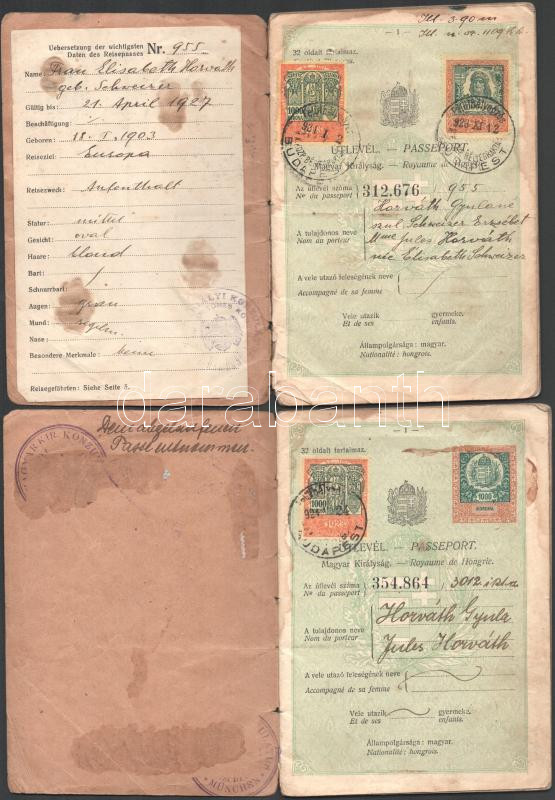 Uebersetzung der wichtigsten
Daten des Reisepasses Nr. 955
Name: Frau Elisabeth Horváth
geb. Schweizer
Gültig bis: 21. April 1927
Beschäftigung:
Geboren: 18. I. 1903
Reiseziel: Europa
Reisezweck: Aufenthalt
Statur: mittel
Gesicht: oval
Haare: blond
Bart:
Schnurrbart:
Augen: grau
Mund: regelm.
Nase:
Besondere Merkmale: keine
Reisegefährten: Siehe Seite 5.
— 1 —
32 oldalt tartalmaz.
1000
BUDAPEST
BUDAPEST
ÚTLEVÉL. — PASSEPORT.
Magyar Királyság. — Royaume de Hongrie.
Az útlevél száma
No du passeport 312.676 955
Horváth Gyuláné
szül Schweizer Erzsébet
A tulajdonos neve
Nom du porteur
Mme Jules Horváth
née Elisabeth Schweizer
A vele utazó feleségének neve
Accompagné de sa femme
Vele utazik gyermeke.
Et de ses enfants.
Állampolgársága: magyar.
Nationalité: hongrois.
darabanth
MÜNCHEN
— 1 —
32 oldalt tartalmaz.
1000
1000
KORONA
BUDAPEST
ÚTLEVÉL. — PASSEPORT.
Magyar Királyság. — Royaume de Hongrie.
Az útlevél száma
No du passeport 354.864 3012
Horváth Gyula
A tulajdonos neve
Nom du porteur
Jules Horváth
A vele utazó feleségének neve
Accompagné de sa femme
Vele utazik gyermeke.
Et de ses enfants.
Állampolgársága: magyar.
Nationalité: hongrois.